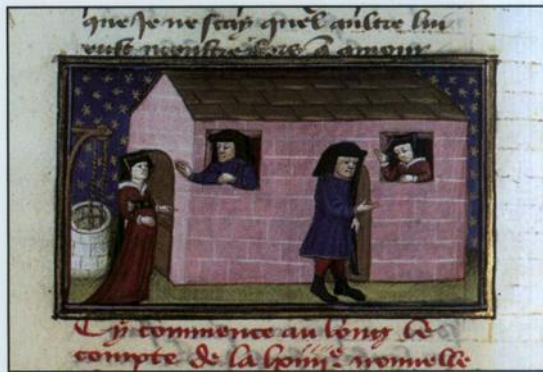 que je ne scay quel aultre lui
eust monstre
Cy commence au long le
compte de la nouvelle